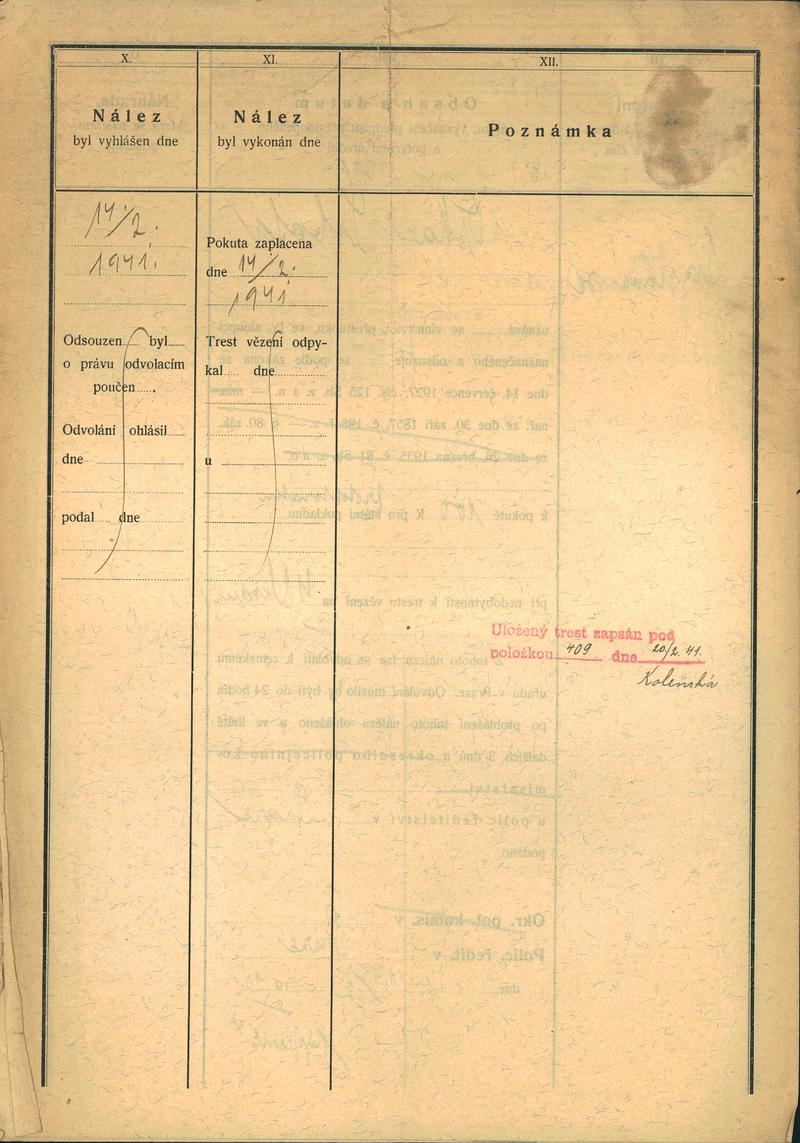 X.
Nález
byl vyhlášen dne
14/2.
1941.
Odsouzen byl
o právu odvolacím
poučen
Odvolání ohlásil
dne
podal dne
XI.
Nález
byl vykonán dne
Pokuta zaplacena
dne 14/2.
1941
Trest vězení odpy-
kal dne
u
XII.
Poznámka
Uložený trest zapsán pod
položkou 409 dne 20/2. 41.
Kolenská